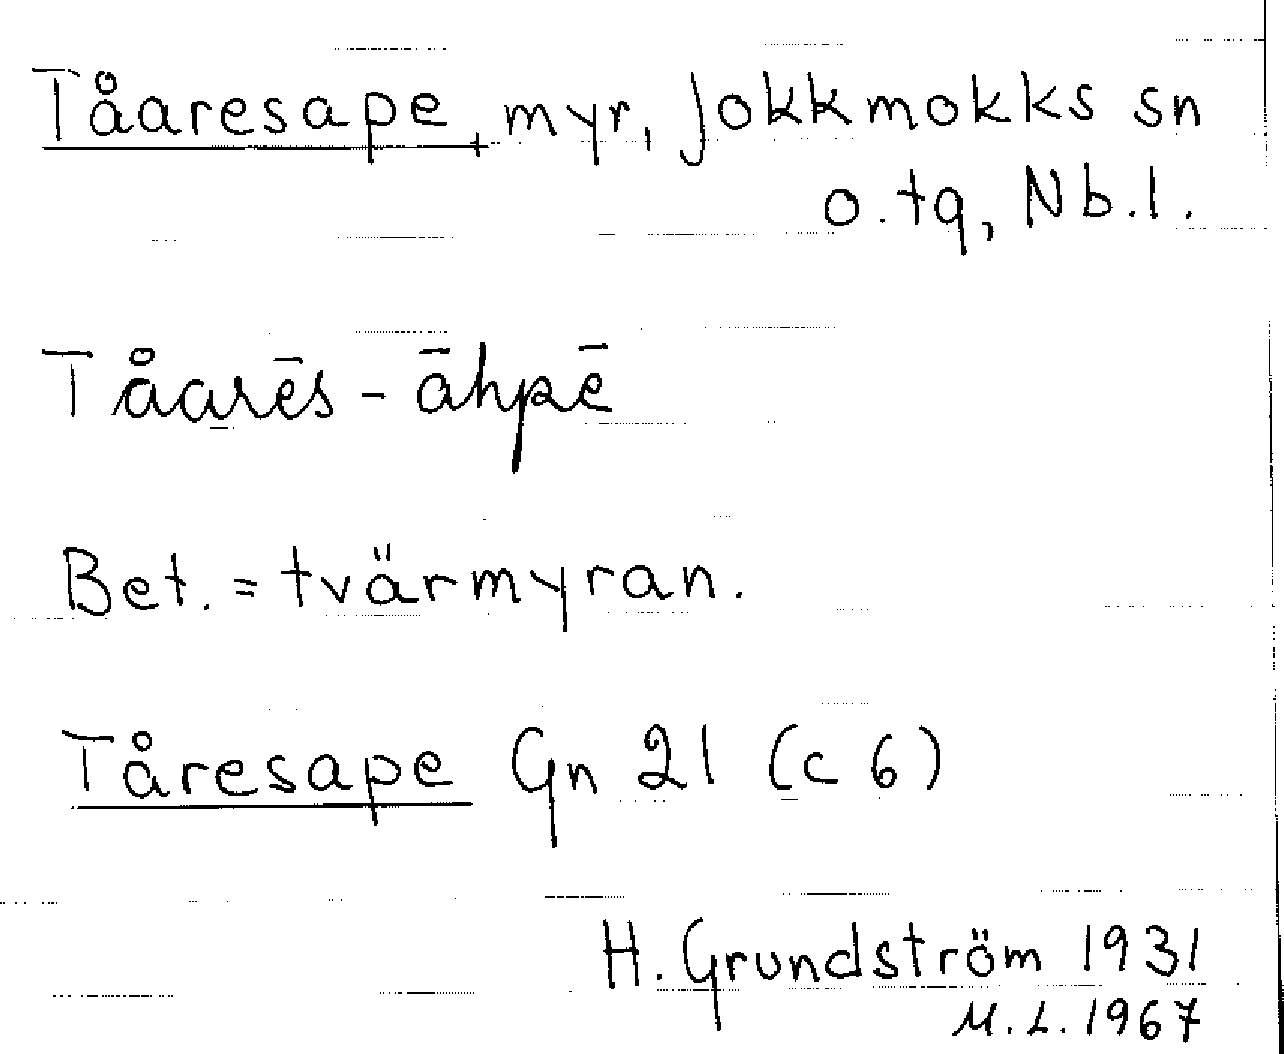 Tåaresape, myr, Jokkmokks sn
o. tg, Nb.l.
Tåarēs - āhpē
Bet. = tvärmyran.
Tåresape Gn 21 (c 6)
H. Grundström 1931
M.L. 1967